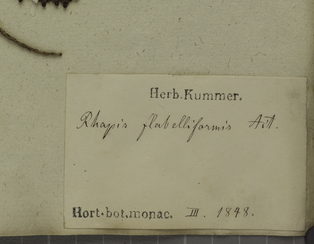 Herb. Kummer.
Rhapis flabelliformis Ait.
Hort. bot. monac. III. 1848.